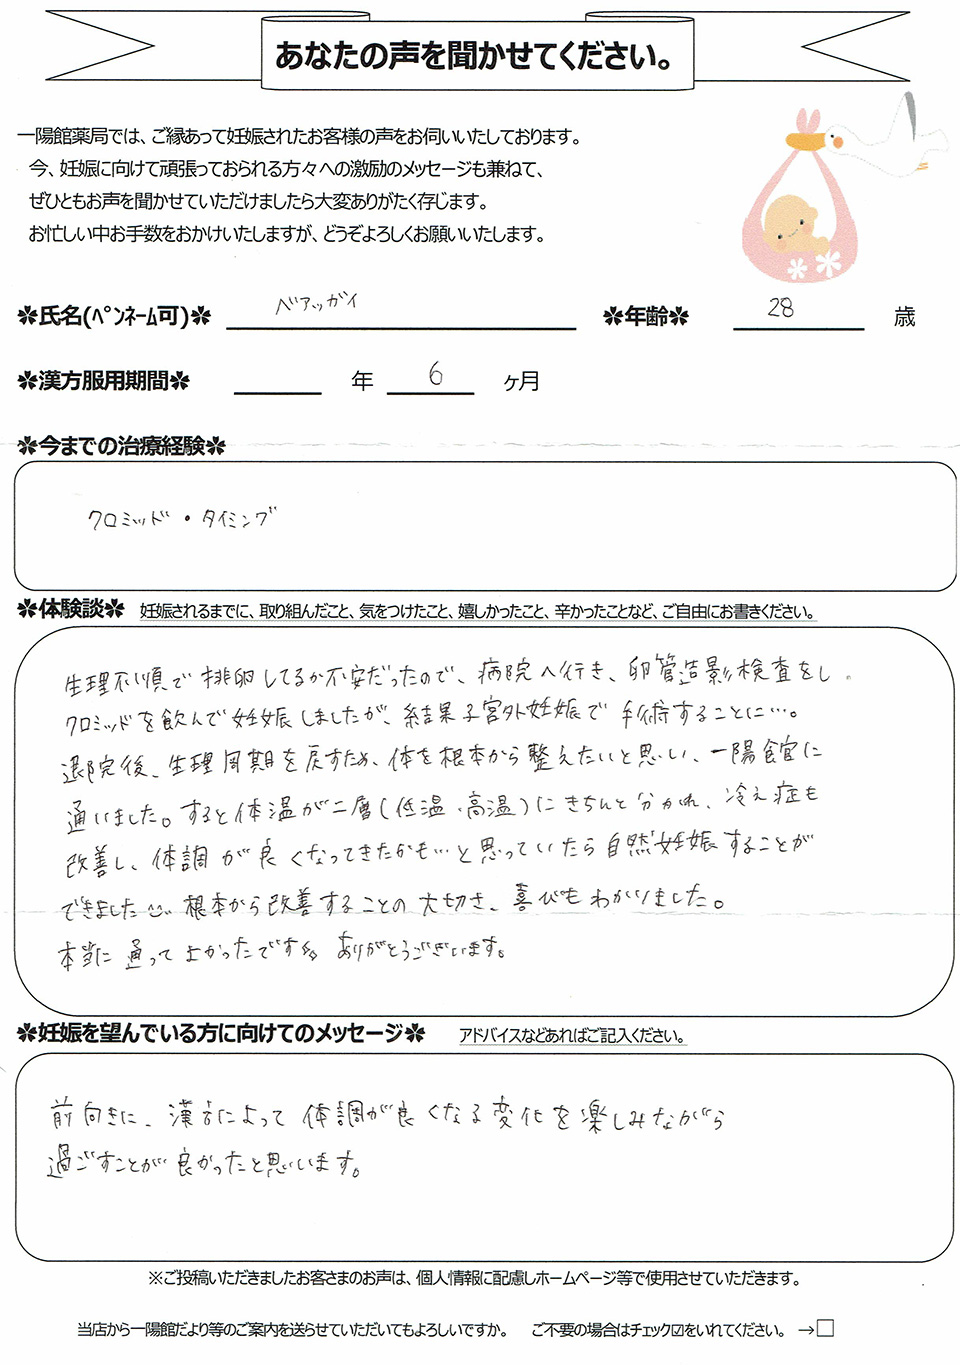 あなたの声を聞かせてください。
一陽館薬局では、ご縁あって妊娠されたお客様の声をお伺いいたしております。
今、妊娠に向けて頑張っておられる方々への激励のメッセージも兼ねて、
ぜひともお声を聞かせていただけましたら大変ありがたく存じます。
お忙しい中お手数をおかけいたしますが、どうぞよろしくお願いいたします。
✽氏名(ペンネーム可)✽ ベアッガイ ✽年齢✽ 28 歳
✽漢方服用期間✽ 年 6 ヶ月
✽今までの治療経験✽
クロミッド・タイミング
✽体験談✽ 妊娠されるまでに、取り組んだこと、気をつけたこと、嬉しかったこと、辛かったことなど、ご自由にお書きください。
生理不順で排卵してるか不安だったので、病院へ行き、卵管造影検査をし。
クロミッドを飲んで妊娠しましたが、結果子宮外妊娠で手術することに…。
退院後、生理周期を戻すため、体を根本から整えたいと思い、一陽館に
通いました。すると体温が二層(低温、高温)にきちんと分かれ、冷え症も
改善し、体調が良くなってきたかも…と思っていたら自然妊娠することが
できました 根本から改善することの大切さ、喜びもわかりました。
本当に通ってよかったです ありがとうございます。
✽妊娠を望んでいる方に向けてのメッセージ✽ アドバイスなどあればご記入ください。
前向きに、漢方によって体調が良くなる変化を楽しみながら
過ごすことが良かったと思います。
※ご投稿いただきましたお客さまのお声は、個人情報に配慮しホームページ等で使用させていただきます。
当店から一陽館だより等のご案内を送らせていただいてもよろしいですか。 ご不要の場合はチェック☑をいれてください。 →□